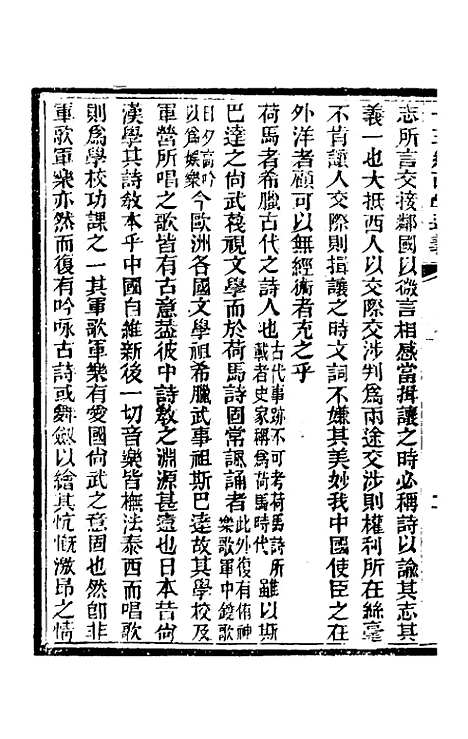 志所言交接鄰國以微言相感當揖讓之時必稱詩以諭其志其
義一也大抵西人以交際交涉判爲兩途交涉則權利所在絲毫
不肯讓人交際則揖讓之時文詞不嫌其美妙我中國使臣之在
外洋者顧可以無經術者充之乎
荷馬者希臘古代之詩人也古代事跡不可考荷馬詩所載者史家稱爲荷馬時代雖以斯
巴達之尙武蔑視文學而於荷馬詩固常諷誦者此外復有侑神樂歌軍中鐃歌
日夕高吟以爲娛樂今歐洲各國文學祖希臘武事祖斯巴達故其學校及
軍營所唱之歌皆有古意葢彼中詩敎之淵源甚遠也日本昔尙
漢學其詩敎本乎中國自維新後一切音樂皆橅法泰西而唱歌
則爲學校功課之一其軍歌軍樂有愛國尙武之意固也然卽非
軍歌軍樂亦然而復有吟咏古詩或舞劍以繪其忼慨激昂之情